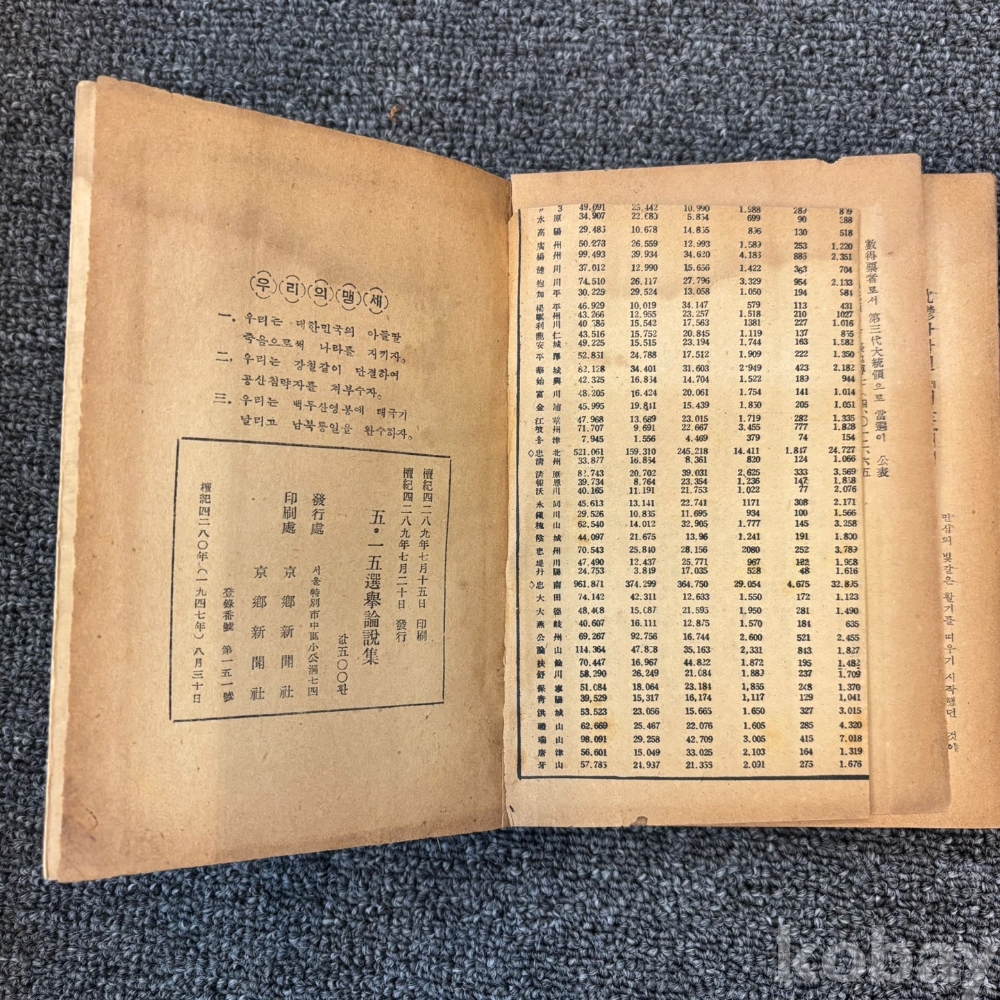 우리의맹세
一. 우리는 대한민국의 아들딸
죽음으로써 나라를 지키자.
二. 우리는 강철같이 단결하여
공산침략자를 처부수자.
三. 우리는 백두산영봉에 태극기
날리고 남북통일을 완수하자.
檀紀四二八九年七月十五日 印刷
檀紀四二八九年七月二十日 發行
五·一五選擧論說集
값五○○환
發行處 서울特別市中區小公洞七四
京鄕新聞社
印刷處 京鄕新聞社
登錄番號 第一五一號
檀紀四二八○年(一九四七年)八月三十日
數得票者로서 第三代大統領으로 當選이 公表
水原 34.907 22.680 5.854 699 90 388
高陽 29.483 10.678 14.855 896 130 518
廣州 50.273 26.559 12.993 1.589 253 1.220
楊州 99.493 39.934 34.620 4.183 886 2.351
漣川 37.012 12.990 15.656 1.422 363 704
抱川 74.510 26.117 27.796 3.329 954 2.133
加平 30.229 9.524 13.058 1.050 194 984
楊平 46.929 10.019 34.147 579 113 431
驪州 43.266 12.955 23.257 1.518 210 1027
利川 40.785 15.542 17.563 1381 227 1.016
龍仁 43.516 15.752 20.845 1.119 137 855
安城 49.225 15.515 23.194 1.744 163 1.582
平澤 52.851 24.788 17.512 1.909 222 1.350
華城 82.128 34.401 31.603 2.949 423 2.182
始興 42.325 16.854 14.704 1.522 189 944
富川 48.205 16.424 20.061 1.754 141 1.014
金浦 45.995 19.841 15.439 1.850 205 1.051
江華 47.968 13.689 23.015 1.719 282 1.335
坡州 71.707 9.691 22.667 3.455 777 1.828
옹津 7.945 1.556 4.469 379 74 154
◇忠北 521.061 159.310 245.218 14.411 1.847 24.727
淸州 33.877 16.854 8.361 820 124 1.066
淸原 82.743 20.702 39.031 2.625 333 3.569
報恩 39.734 8.764 23.354 1.236 147 1.858
沃川 40.165 11.191 21.753 1.022 77 2.076
永同 45.613 13.141 22.741 1171 308 2.171
鎭川 29.526 10.835 11.695 934 100 1.566
槐山 62.540 14.012 32.905 1.777 145 3.258
陰城 44.097 21.675 13.96 1.241 191 1.800
忠州 70.543 25.840 28.156 2080 252 3.789
堤川 47.490 12.437 25.771 967 122 1.958
丹陽 24.753 3.819 17.035 528 48 1.616
◇忠南 961.871 374.299 364.750 29.054 4.675 32.895
大田 74.142 42.311 12.633 1.550 172 1.123
大德 48.408 15.087 21.593 1.950 281 1.490
燕岐 40.607 16.111 12.875 1.570 184 635
公州 69.267 92.756 16.744 2.600 521 2.455
論山 114.364 47.828 35.163 2,331 843 1.827
扶餘 70.447 16.967 44.822 1.872 195 1.482
舒川 58.290 26.249 21.084 1.889 237 1.709
保寧 51.084 18.064 23.184 1.855 248 1.370
靑陽 39.529 15.317 16.174 1,117 129 1.041
洪城 53.523 23.056 15.665 1.650 327 3.015
禮山 62.669 25.467 22.076 1.605 285 4.320
瑞山 98.091 29.258 42.709 3.005 415 7.018
唐津 56.601 15.049 33.025 2.103 164 1.319
牙山 57.785 21.937 21.355 2.091 275 1.676
민심의 빛갈은 활기를 띠우기 시작했던 것이
kobay